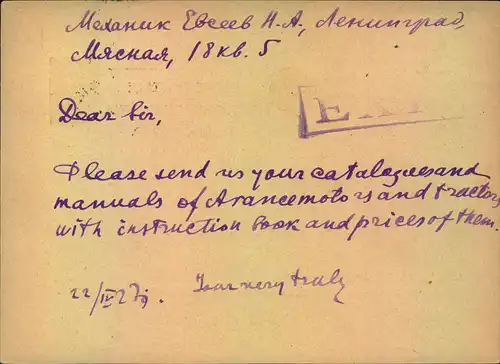 Механик Евсеев Н.А, Ленинград,
Мясная, 18 кв. 5
Dear sir,
Please send us your catalogues and
manuals of and tractors
with instruction book and prices of them.
22/IV 27g.
Your very truly